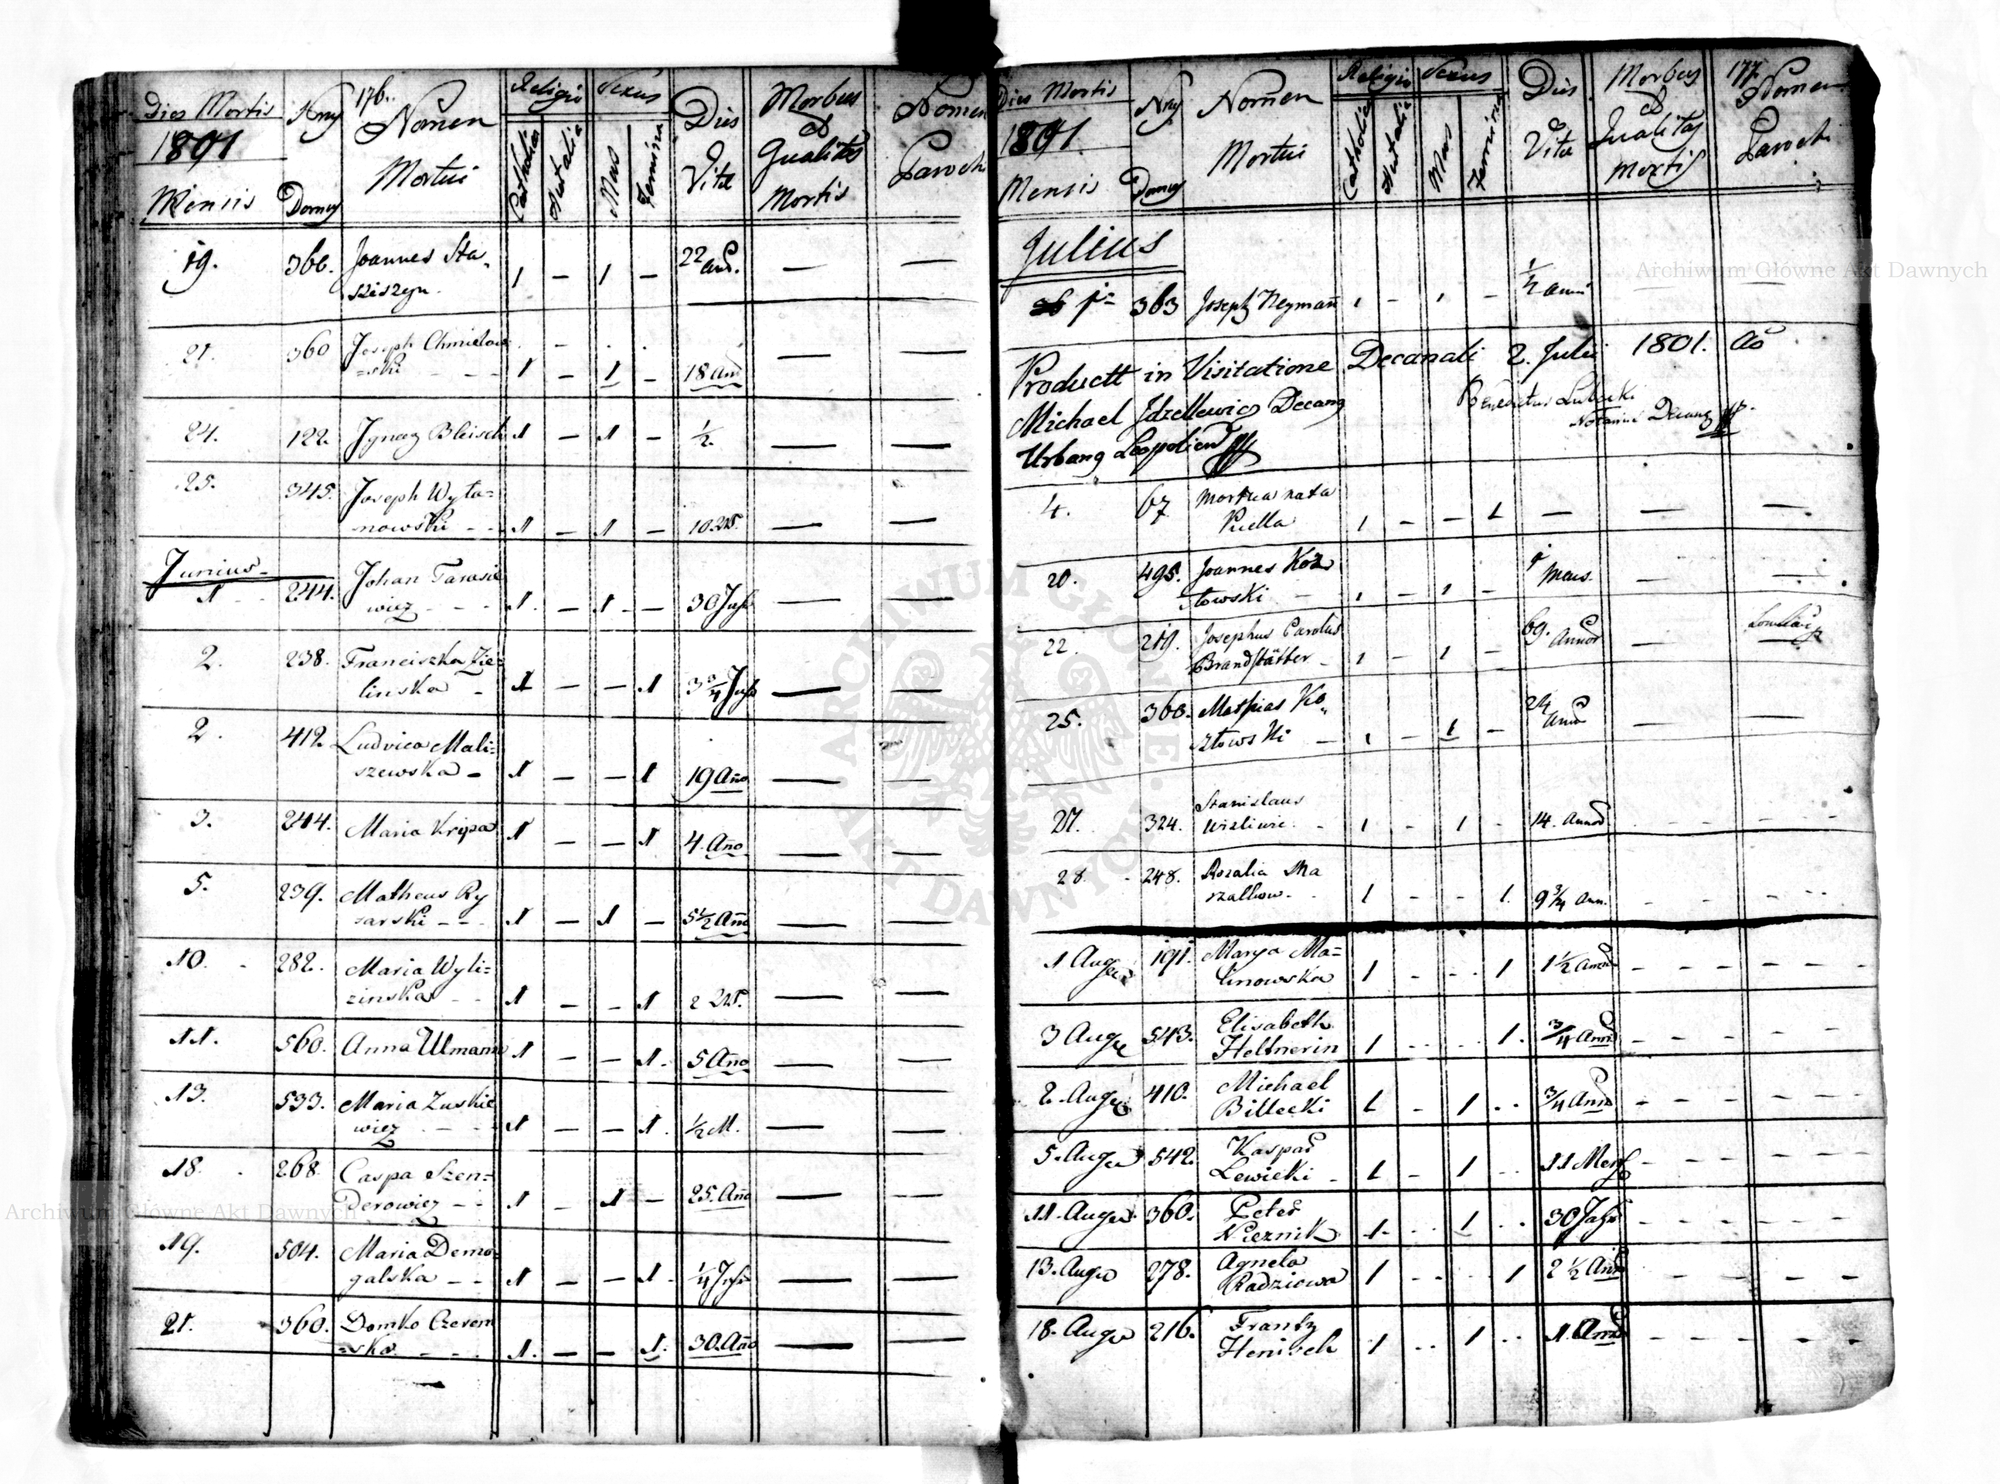 176.
Dies Mortis
1801
Mensis
Nrus
Domus
Nomen
Mortui
Religio
Catholica
Sexus
Mas
Femina
Dies
Vitæ
Morbus
et
Qualitas
Mortis
Nomen
Parochi
19. 366. Joannes Sta-
1 — 1 — 22
21. 360 Joseph Chmielow
=ski - - 1 — 1 — 18 Añ
24. 122. Ignacy Bleisch 1 — 1 — ½.
25. 345. Joseph Wyta=
nowski - - 1 — 1 —
Junius
1 - - 244. Johan Tarasie
wicz - - - 1. — 1 - — 30 Jahr
2. 238. Franciszka Zie-
linska - 1 — — 1 3¾ Jahr
2. 412. Ludvica Mali=
szewska - 1 — — 1 19 Año
3. 244. Maria Kripa 1 — — 1 4. Año
5. 239. Matheus Ry
sarski - - - 1 — 1 — 5½ Año
10. 282. Maria Wyli=
zinska - - 1 — — 1
11. 560. Anna Ulmann 1 — — 1. 5 Año
13. 533. Maria Zuskie
wicz - - - 1 — — 1. ½ M.
18. 268 Caspa Szen=
derowicz - - 1 — 1 — 25. Año
19. 504. Maria Demo=
galska - - 1 — — 1. ¼ Jahr
21. 360. Domko Czerem
=ska. - - - 1. — — 1. 30. Año
177.
Dies Mortis
1801.
Mensis
Nrus
Domus
Nomen
Mortui
Religio
Catholica
Sexus
Mas
Femina
Dies
Vitæ
Morbus
et
Qualitas
Mortis
Nomen
Parochi
Julius
1ª 363 Joseph Neyman 1 - 1 - ½ anni
Productt in Visitatione Decanali 2. Julii 1801. Ao
Michael Decang
Benedictus
Notarius Decang
Urbang Leopoliens
4. 67 Mortua nata
Puella 1 — — 1 — — —
20. 495. Joannes Koz
lowski - 1 - 1 - Mens.
22. 219. Josephus Carolus
Brandstätter - 1 - 1 - 69. Annor
25. 360. Mathias Ko-
złowski - 1 - 1 - 24 Anno
27. 324. Stanislaus
1 - 1 - 14. Annor
28. 248. Rozalia Ma
rzalkow. 1 - - 1. 9¾ Ann.
1 Augu 191. Marya Ma=
linowska 1 - - 1 1½ Anno
3 Augu 543. Elisabeth
Heltnerin 1 - - 1. ¾ Anni
2. Augu 410. Michael
Billecki 1 - 1 - ¾ Anno
5. Augu 542. Kasper
Lewicki - 1 - 1 - 11 Mens
11. Augu 360. Peter
Pieznik 1 - 1 - 30 Jahr
13. Augu 278. Agneta
Radziowa 1 - - 1 2½ Añ
18. Augu 216. Frantz
Henisch 1 - 1 - 1. Anno
Archiwum Główne Akt Dawnych
Archiwum Główne Akt Dawnych
ARCHIWUM GŁÓWNE AKT DAWNYCH